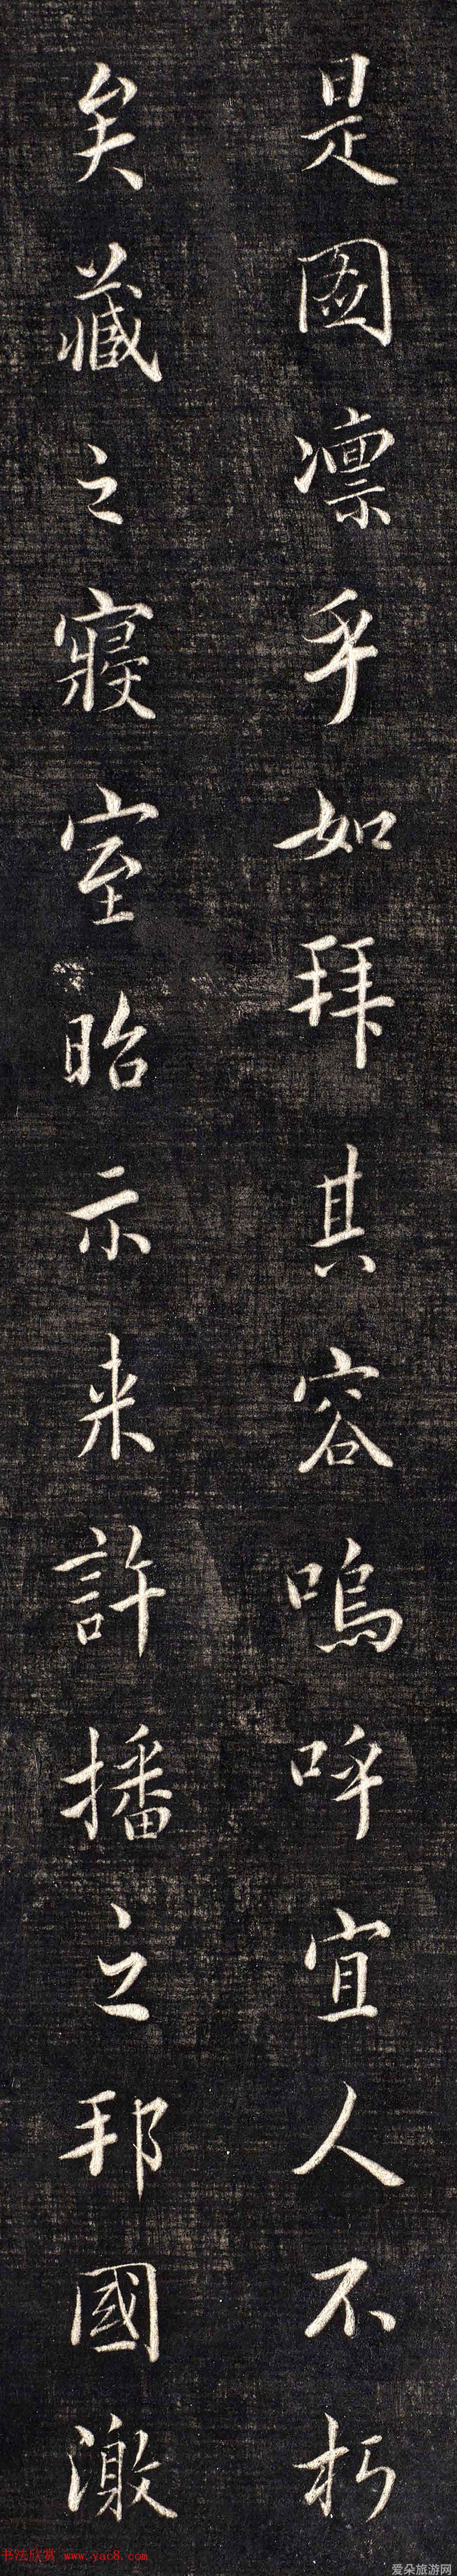 是图凛乎如拜其容呜呼宜人不朽
矣藏之寝室昭示来许播之邦国激
书法欣赏 www.yac8.com
爱朵旅游网